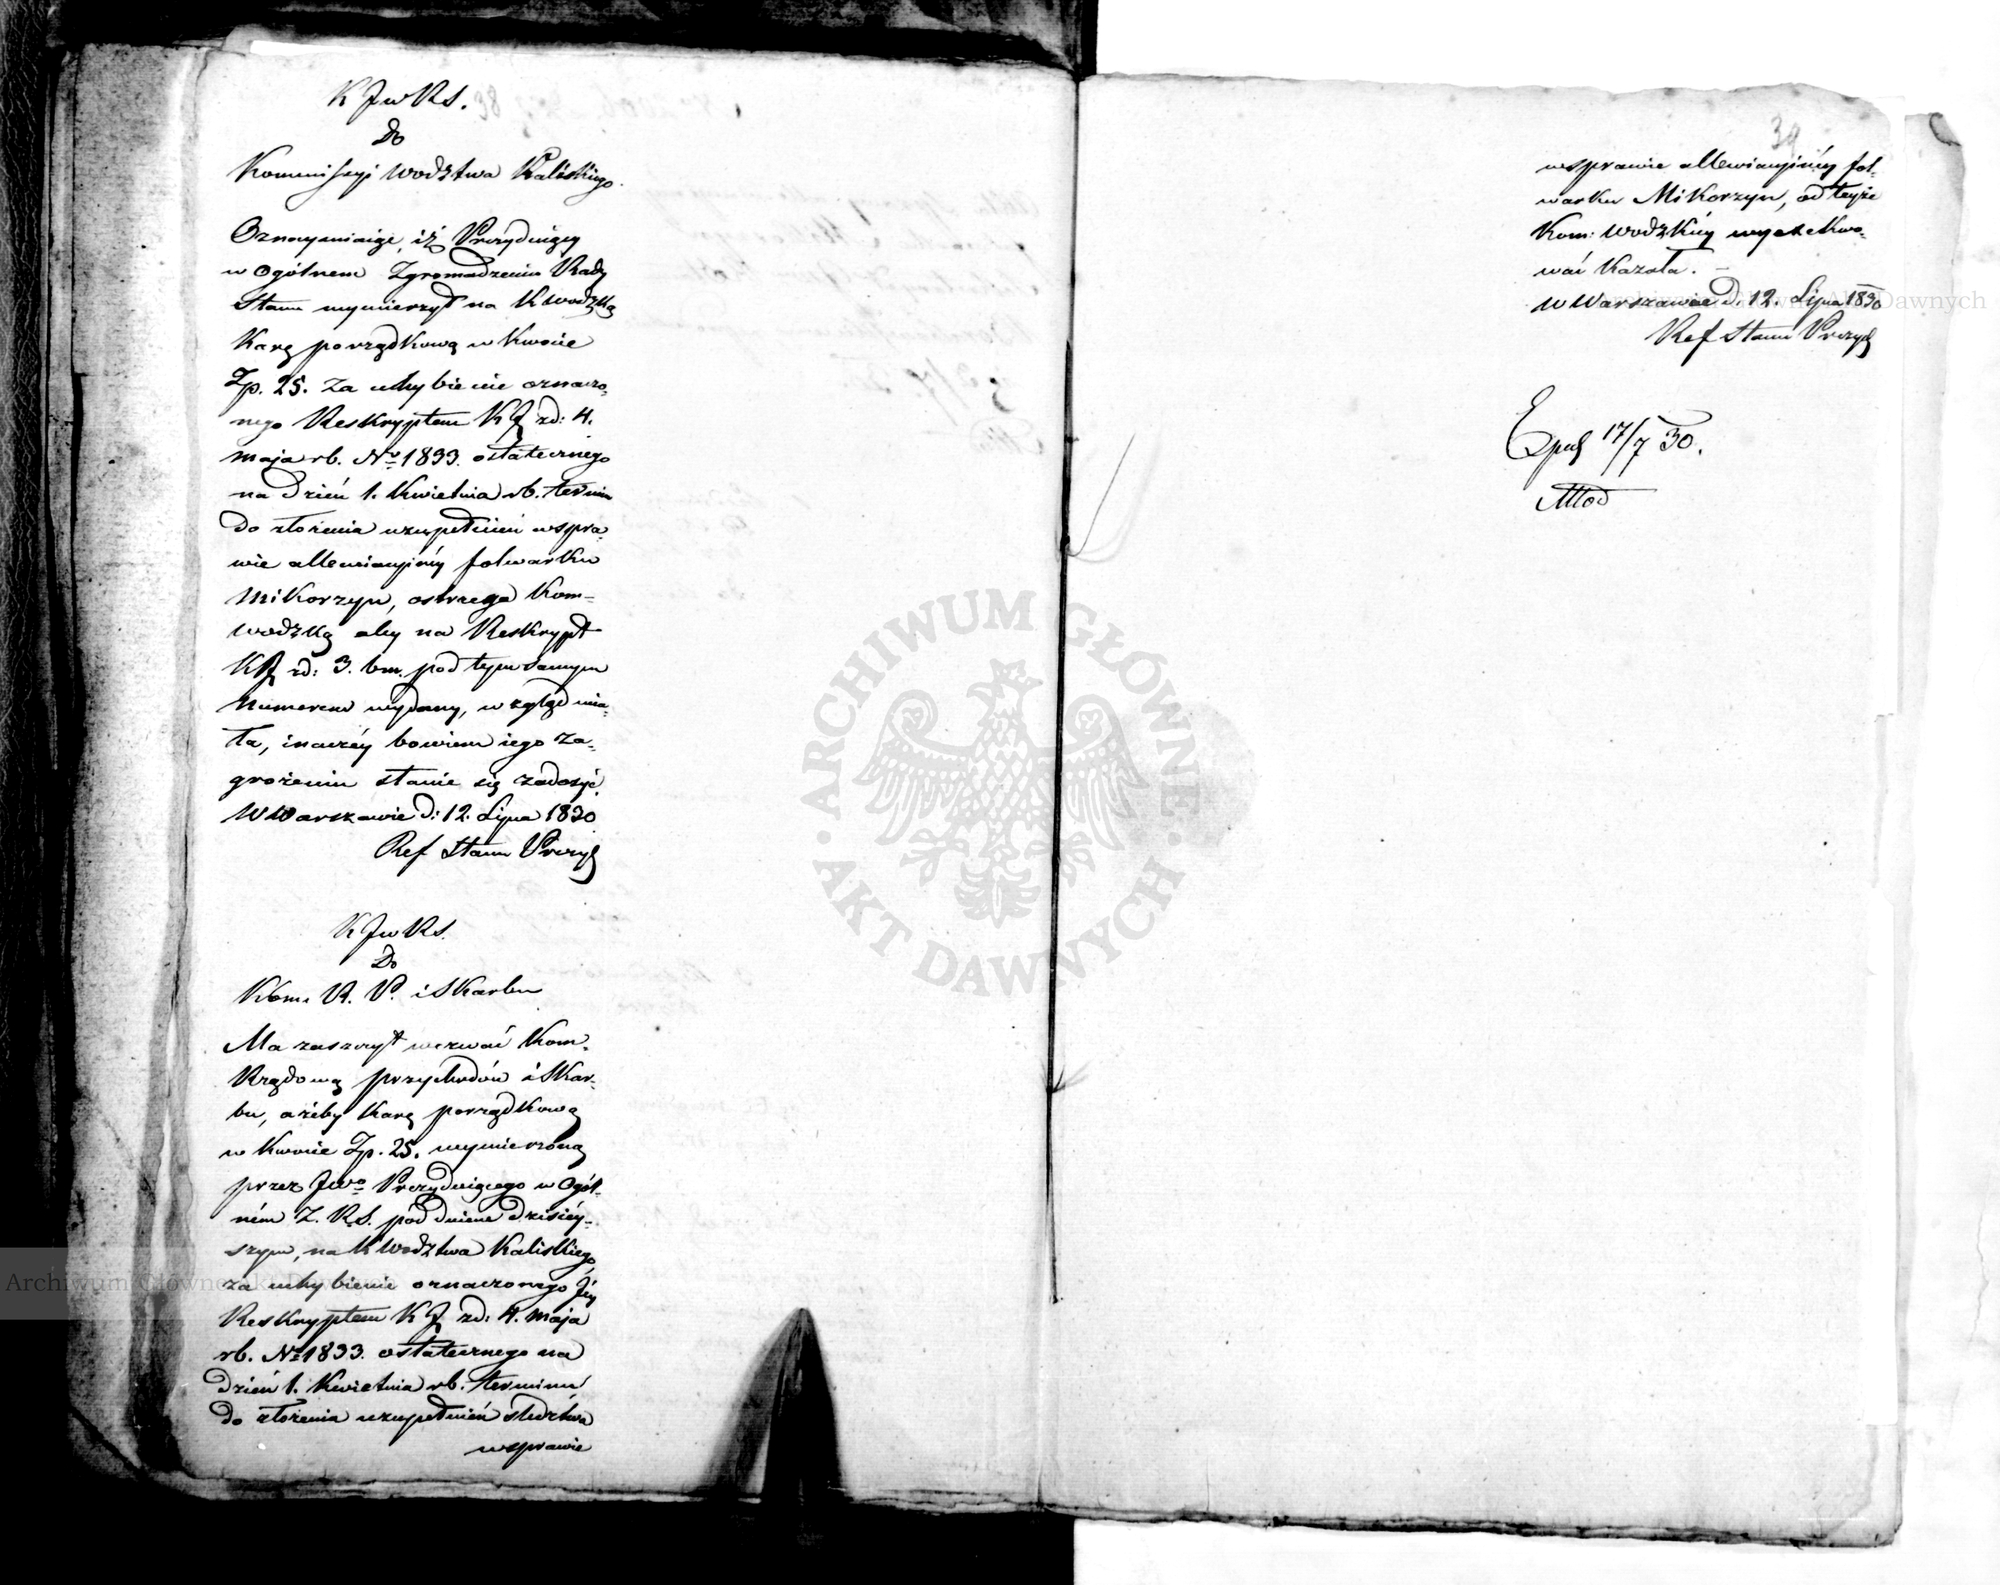 K J w RS.
Do
Kommissyi Wodztwa Kaliskiego.
Oznaymiaiąc, iż Prezyduiący
w Ogólnem Zgromadzeniu Rady
Stanu wymierzył na K Wodzką
Karę porządkową w Kwocie
Zp. 25. Za uchybienie oznaczo-
nego Reskryptem KJ zd: 4.
Maja rb. No 1833. ostatecznego
na dzień 1. Kwietnia rb. termin
do złożenia uzupełnień w spra-
wie allewiacyiney folwarku
Mikorzyn, ostrzega Kom-
Wodzką aby na Reskrypt
KJ zd: 3. bm. pod tym samym
Numerem wydany, wzgląd mia-
ła, inaczéy bowiem iego za-
grożeniu stanie się zadosyć.
W Warszawie d: 12. Lipca 1830
Ref Stanu Prezyd
K J w RS.
Do
Kom. R. P. i Skarbu
Ma zaszczyt wezwać Kom.
Rządową przychodów i Skar-
bu, ażeby Karę porządkową
w Kwocie Zp. 25. wymierzoną
przez JWo Prezyduiącego w Ogól-
ném Z. R.S. pód dniem dzisiéy-
szym, na K Wodztwa Kaliskiego,
za uchybienie oznaczonego Jéy
Reskryptem KJ zd: 4. Maja
rb. No 1833. ostatecznego na
dzień 1. Kwietnia rb. terminu
do złożenia uzupełnień śledztwa
w sprawie
39
w sprawie allewiacyinéy fol-
warku Mikorzyn, od teyże
Kom: Wodzkiéy wyexekwo-
wać Kazała. –
W Warszawie d. 12. Lipca 1830
Ref Stanu Prezyd
Exped 17/7 30.
ARCHIWUM GŁÓWNE
AKT DAWNYCH
Archiwum Główne Akt Dawnych
Archiwum Główne Akt Dawnych